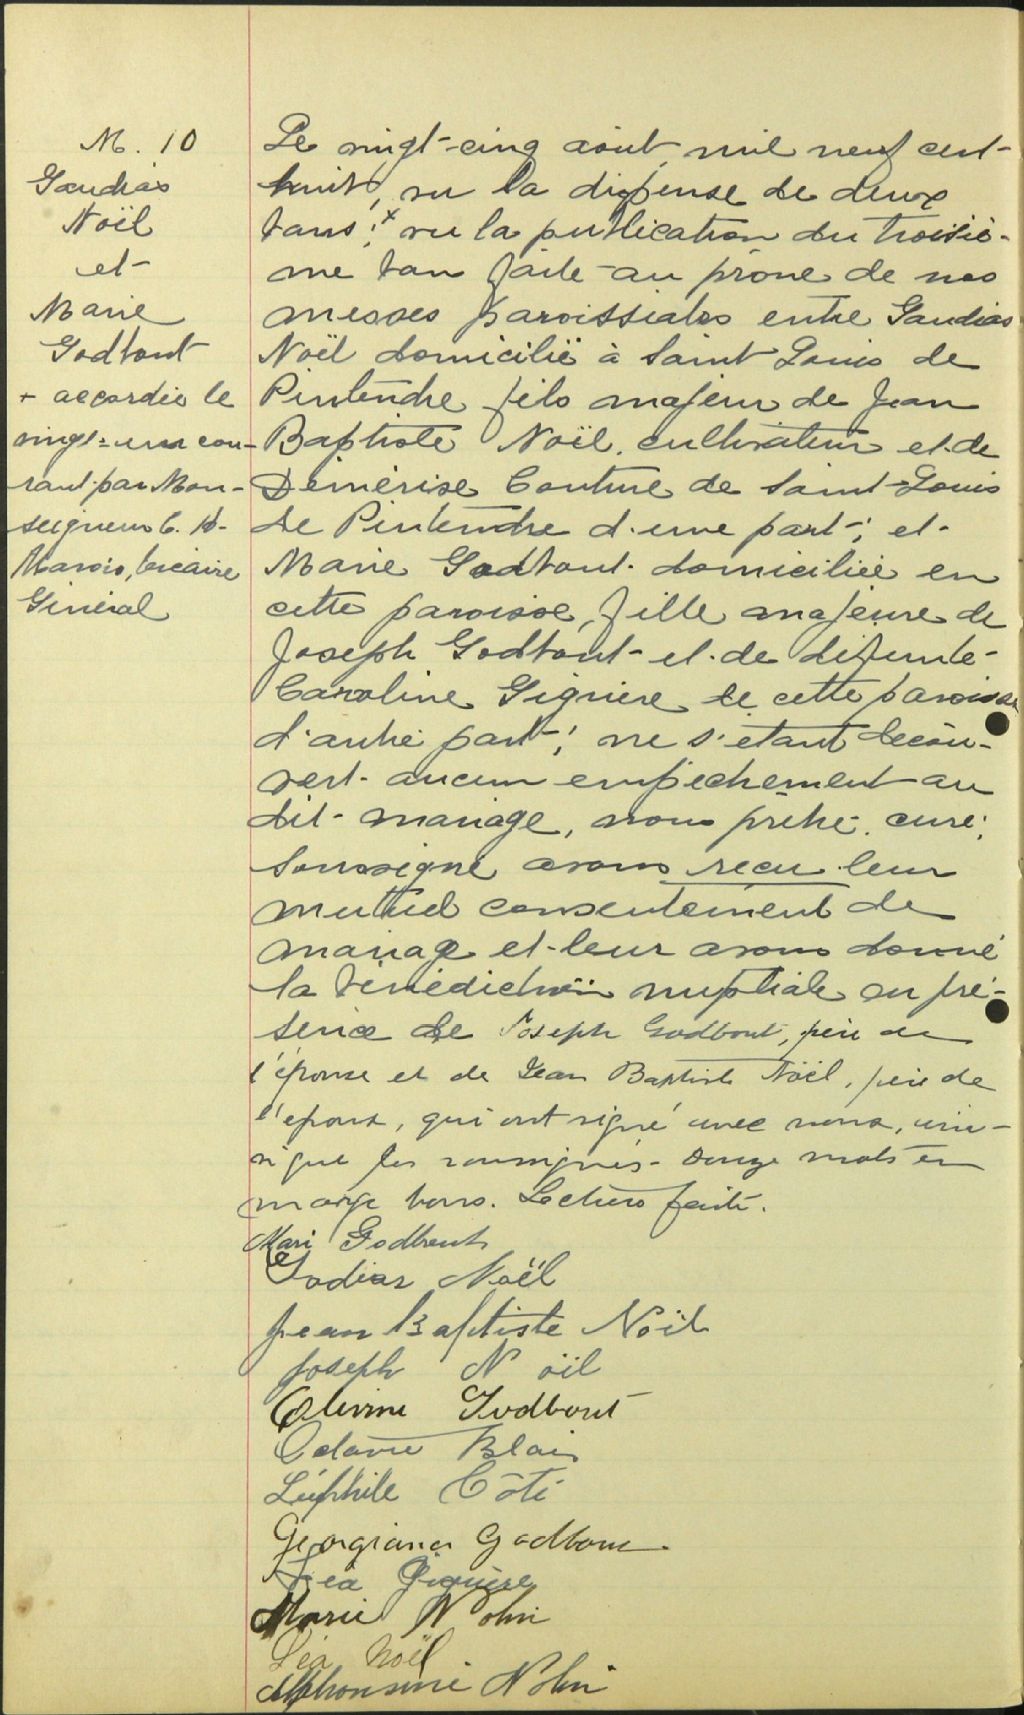 M. 10
Gaudias
Noël
et
Marie
Godbout
+ accordée le
vingt-un cou-
rant par Mon-
seigneur C. A.
Marois, vicaire
Général
Le vingt-cinq août mil neuf cent-
huit, vu la dispense de deux
bans,+ vu la publication du troisiè-
me ban faite au prône de nos
messes paroissiales entre Gaudias
Noël domicilié à Saint Louis de
Pintendre fils majeur de Jean
Baptiste Noël, cultivateur et de
Démérise Couture de Saint-Louis
de Pintendre d'une part; et
Marie Godbout domiciliée en
cette paroisse, fille majeure de
Joseph Godbout et de défunte
Caroline Giguère de cette paroisse
d'autre part; ne s'étant décou-
vert aucun empêchement au
dit mariage, nous prêtre, curé,
soussigné avons reçu leur
mutuel consentement de
mariage et leur avons donné
la bénédiction nuptiale en pré-
sence de Joseph Godbout, père de
l'épouse et de Jean Baptiste Noël, père de
l'époux, qui ont signé avec nous, ain-
si que les soussignés. Douze mots en
marge bons. Lecture faite.
Marie Godbout
Godias Noël
Jean Baptiste Noël
Joseph Noël
Godbout
Octavie Blais
Côté
Georgiana Godbout
Léa Giguère
Marie Nolin
Léa Noël
Alphonsine Nolin